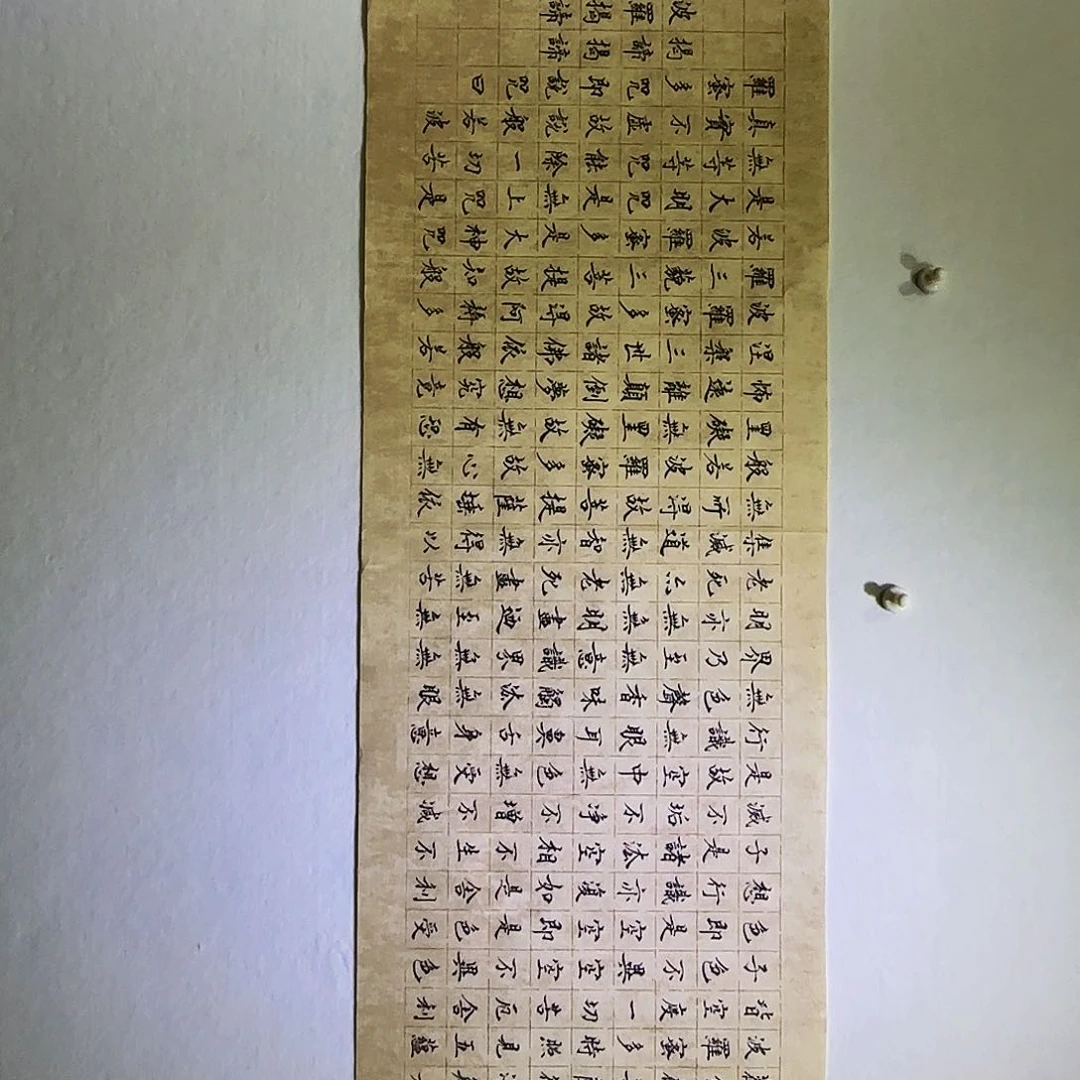 波羅蜜多時照見五蘊
皆空度一切苦厄舍利
子色不異空空不異色
色即是空空即是色受
想行識亦復如是舍利
子是諸法空相不生不
滅不垢不淨不增不減
是故空中無色無受想
行識無眼耳鼻舌身意
無色聲香味觸法無眼
界乃至無意識界無無
明亦無無明盡迺至無
老死亦無老死盡無苦
集滅道無智亦無得以
無所得故菩提薩埵依
般若波羅蜜多故心無
罣礙無罣礙故無有恐
怖遠離顛倒夢想究竟
涅槃三世諸佛依般若
波羅蜜多故得阿耨多
羅三藐三菩提故知般
若波羅蜜多是大神咒
是大明咒是無上咒是
無等等咒能除一切苦
真實不虛故說般若波
羅蜜多咒即說咒曰
揭諦揭諦
波羅揭諦